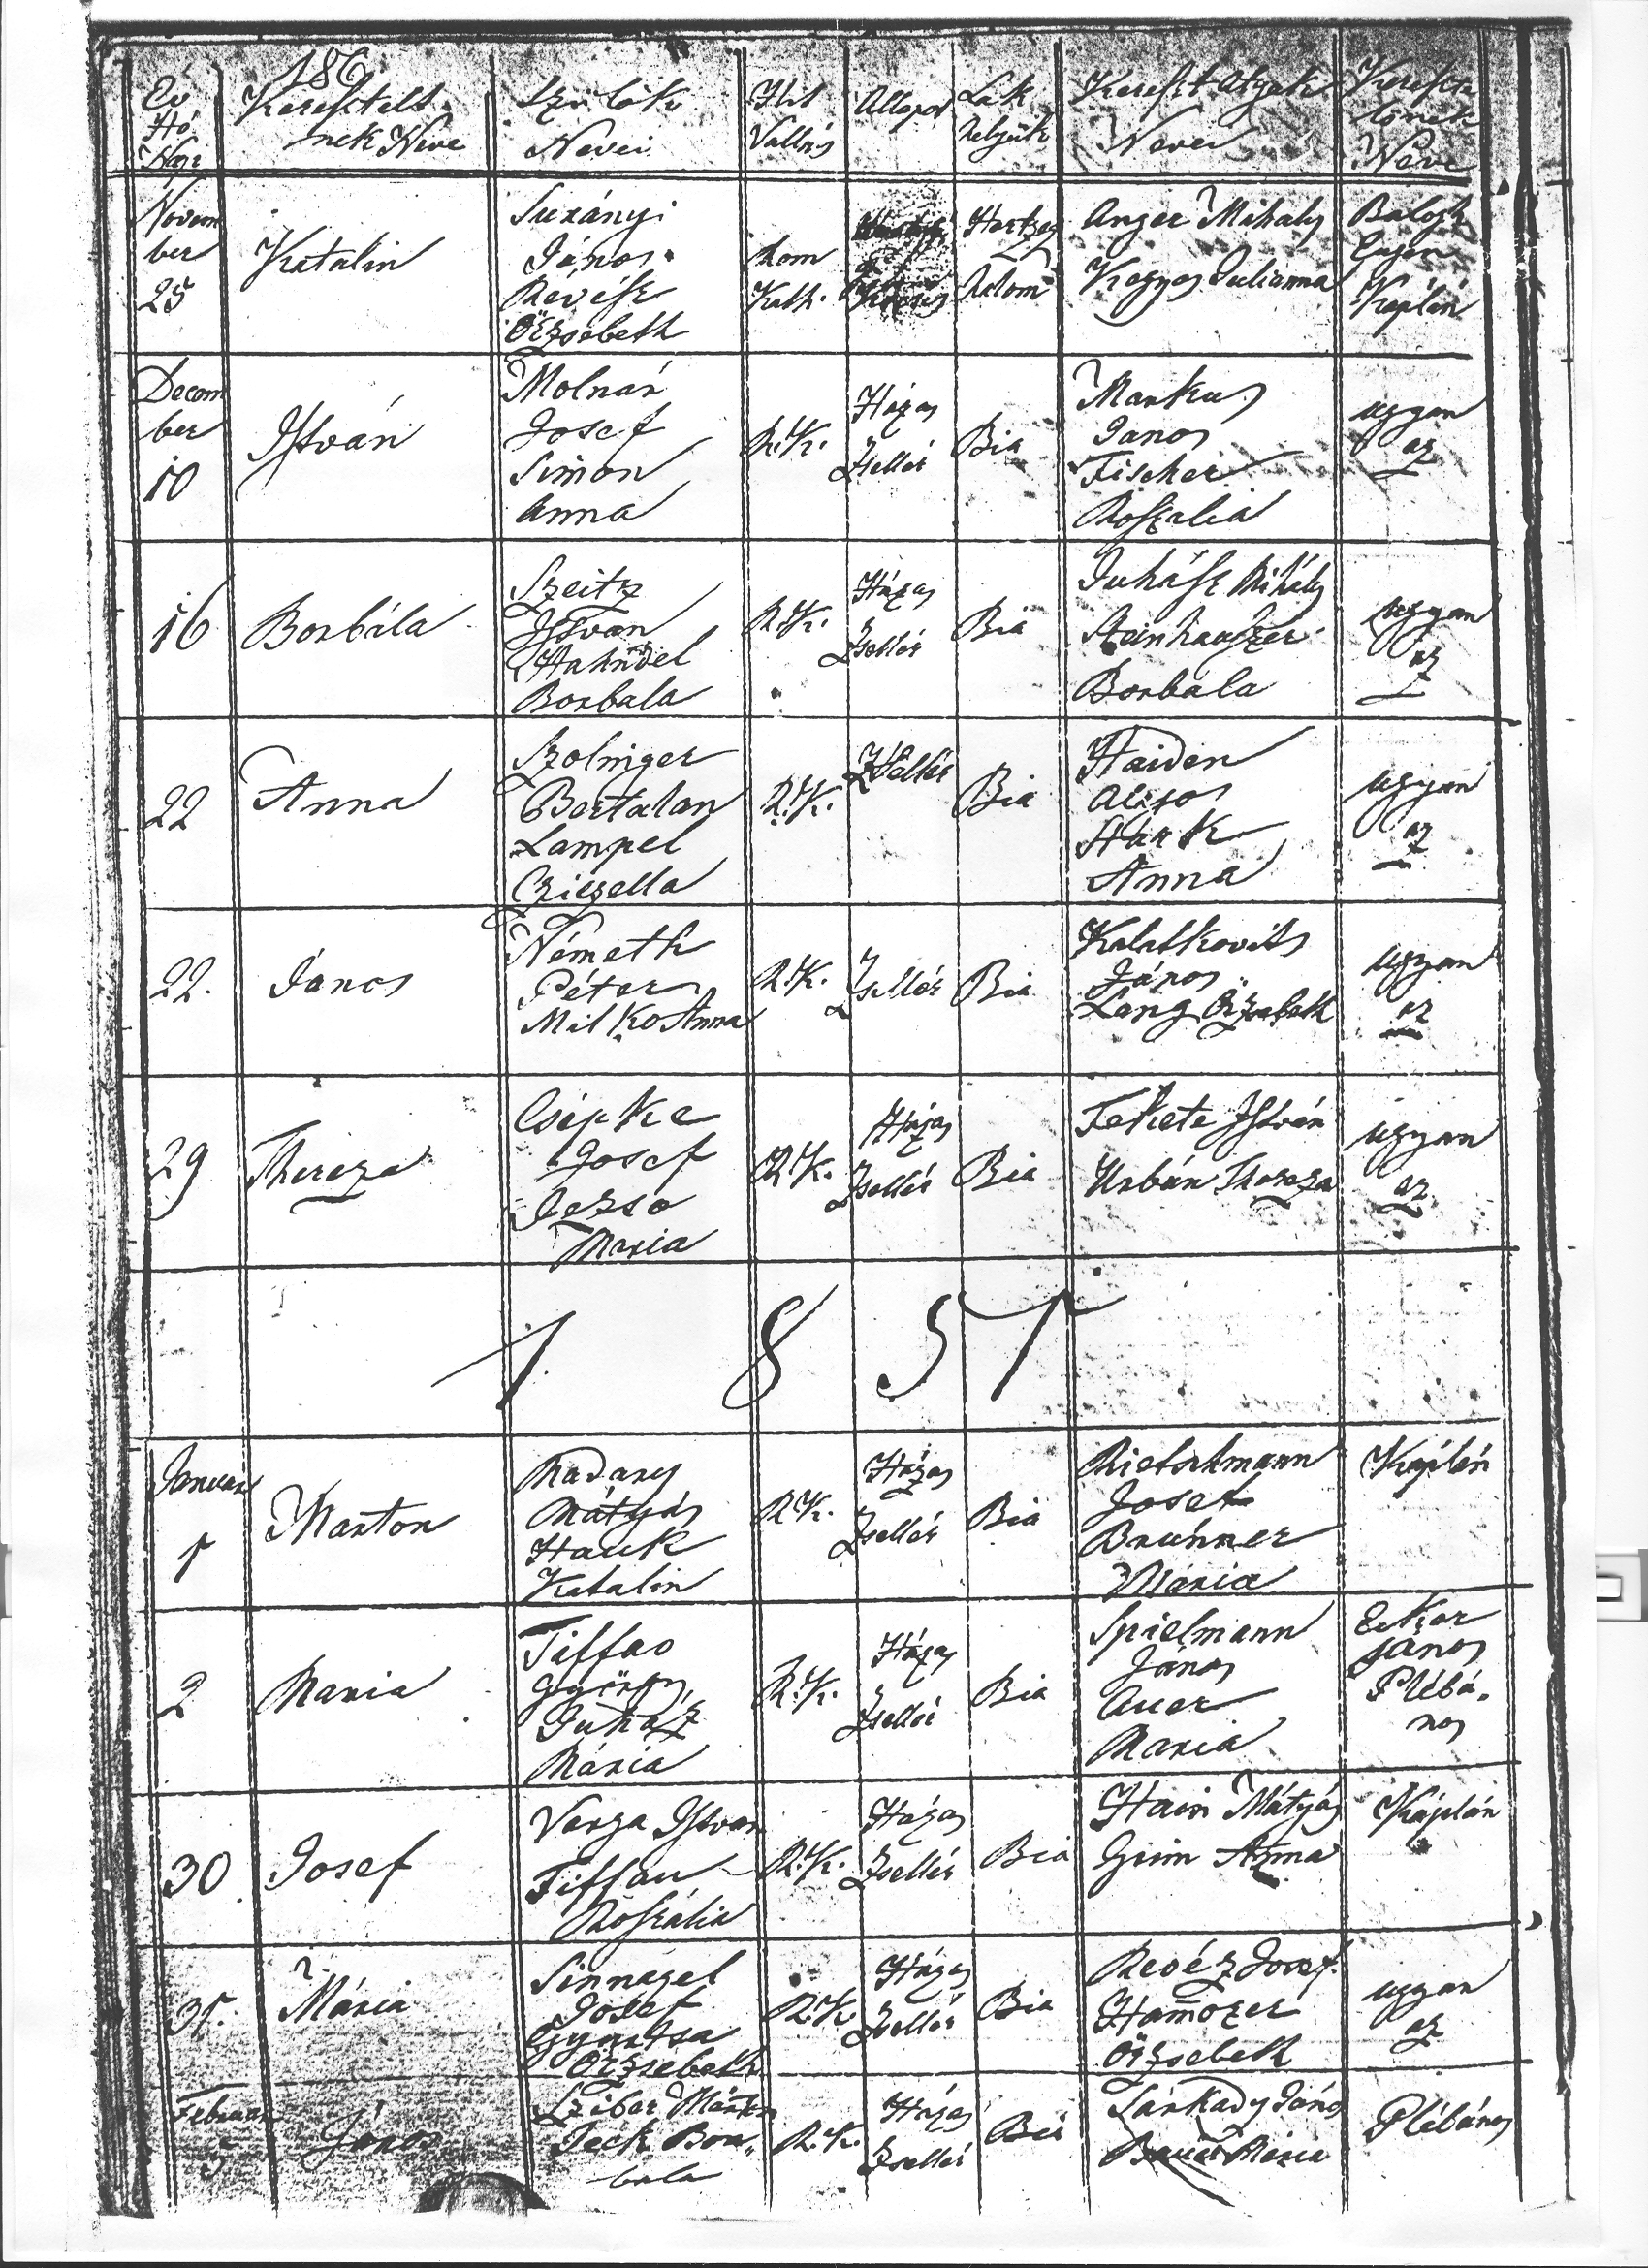 186
Év Hó Nap
Kereszteltnek Neve
Szülők Nevei
Hit Vallás
Állapot
Lak helyük
Kereszt Atyák Nevei
Keresztelőnek Neve
November 25
Katalin
János
Revész
Örzsebeth
Rom Kath.
Anger Mihaly
Kegyes Julianna
Balogh
Káplán
December 10
István
Molnár
Josef
Simon
Anna
R.K.
Házas
Zsellér
Bia
Markus
Janos
Fischer
Roszalia
ugyan az
16
Borbála
Szeitz
Istvan
Hahndel
Borbala
R.K.
Házas
Zsellér
Bia
Juhász Mihály
Steinhauszer
Borbala
ugyan az
22
Anna
Szolniger
Bertalan
Lampel
Cziczella
R.K.
Zsellér
Bia
Haiden
Anna
ugyan az
22.
János
Németh
Péter
Milko Anna
R.K.
Zsellér
Bia
Kalatkovits
János
Lang Örzsebeth
ugyan az
29
Thereza
Csépke
Josef
Dezso
Maria
R.K.
Házas
Zsellér
Bia
Fekete István
Urbán Thereza
ugyan az
1851
Január 1
Marton
Radany
Mátyás
Hauk
Katalin
R.K.
Házas
Zsellér
Bia
Rietschmann
Josef
Brunner
Mária
Káplán
2
Maria
Tiffao
György
Juház
Mária
R.K.
Házas
Zsellér
Bia
Spielmann
János
Auer
Maria
János
Plébános
30
Josef
Varga Istvan
Tiffau
Roszália
R.K.
Házas
Zsellér
Bia
Hain Mátyás
Grim Anna
Káplán
31.
Mária
Sinnagel
Josef
Örzsebeth
R.K.
Házas
Zsellér
Bia
Revéz Josef
Hamozer
Örzsebeth
ugyan az
Február 5
János
Márton
Jeck Borbala
R.K.
Házas
Zsellér
Bia
Sárkady János
Bauer Mária
Plébános